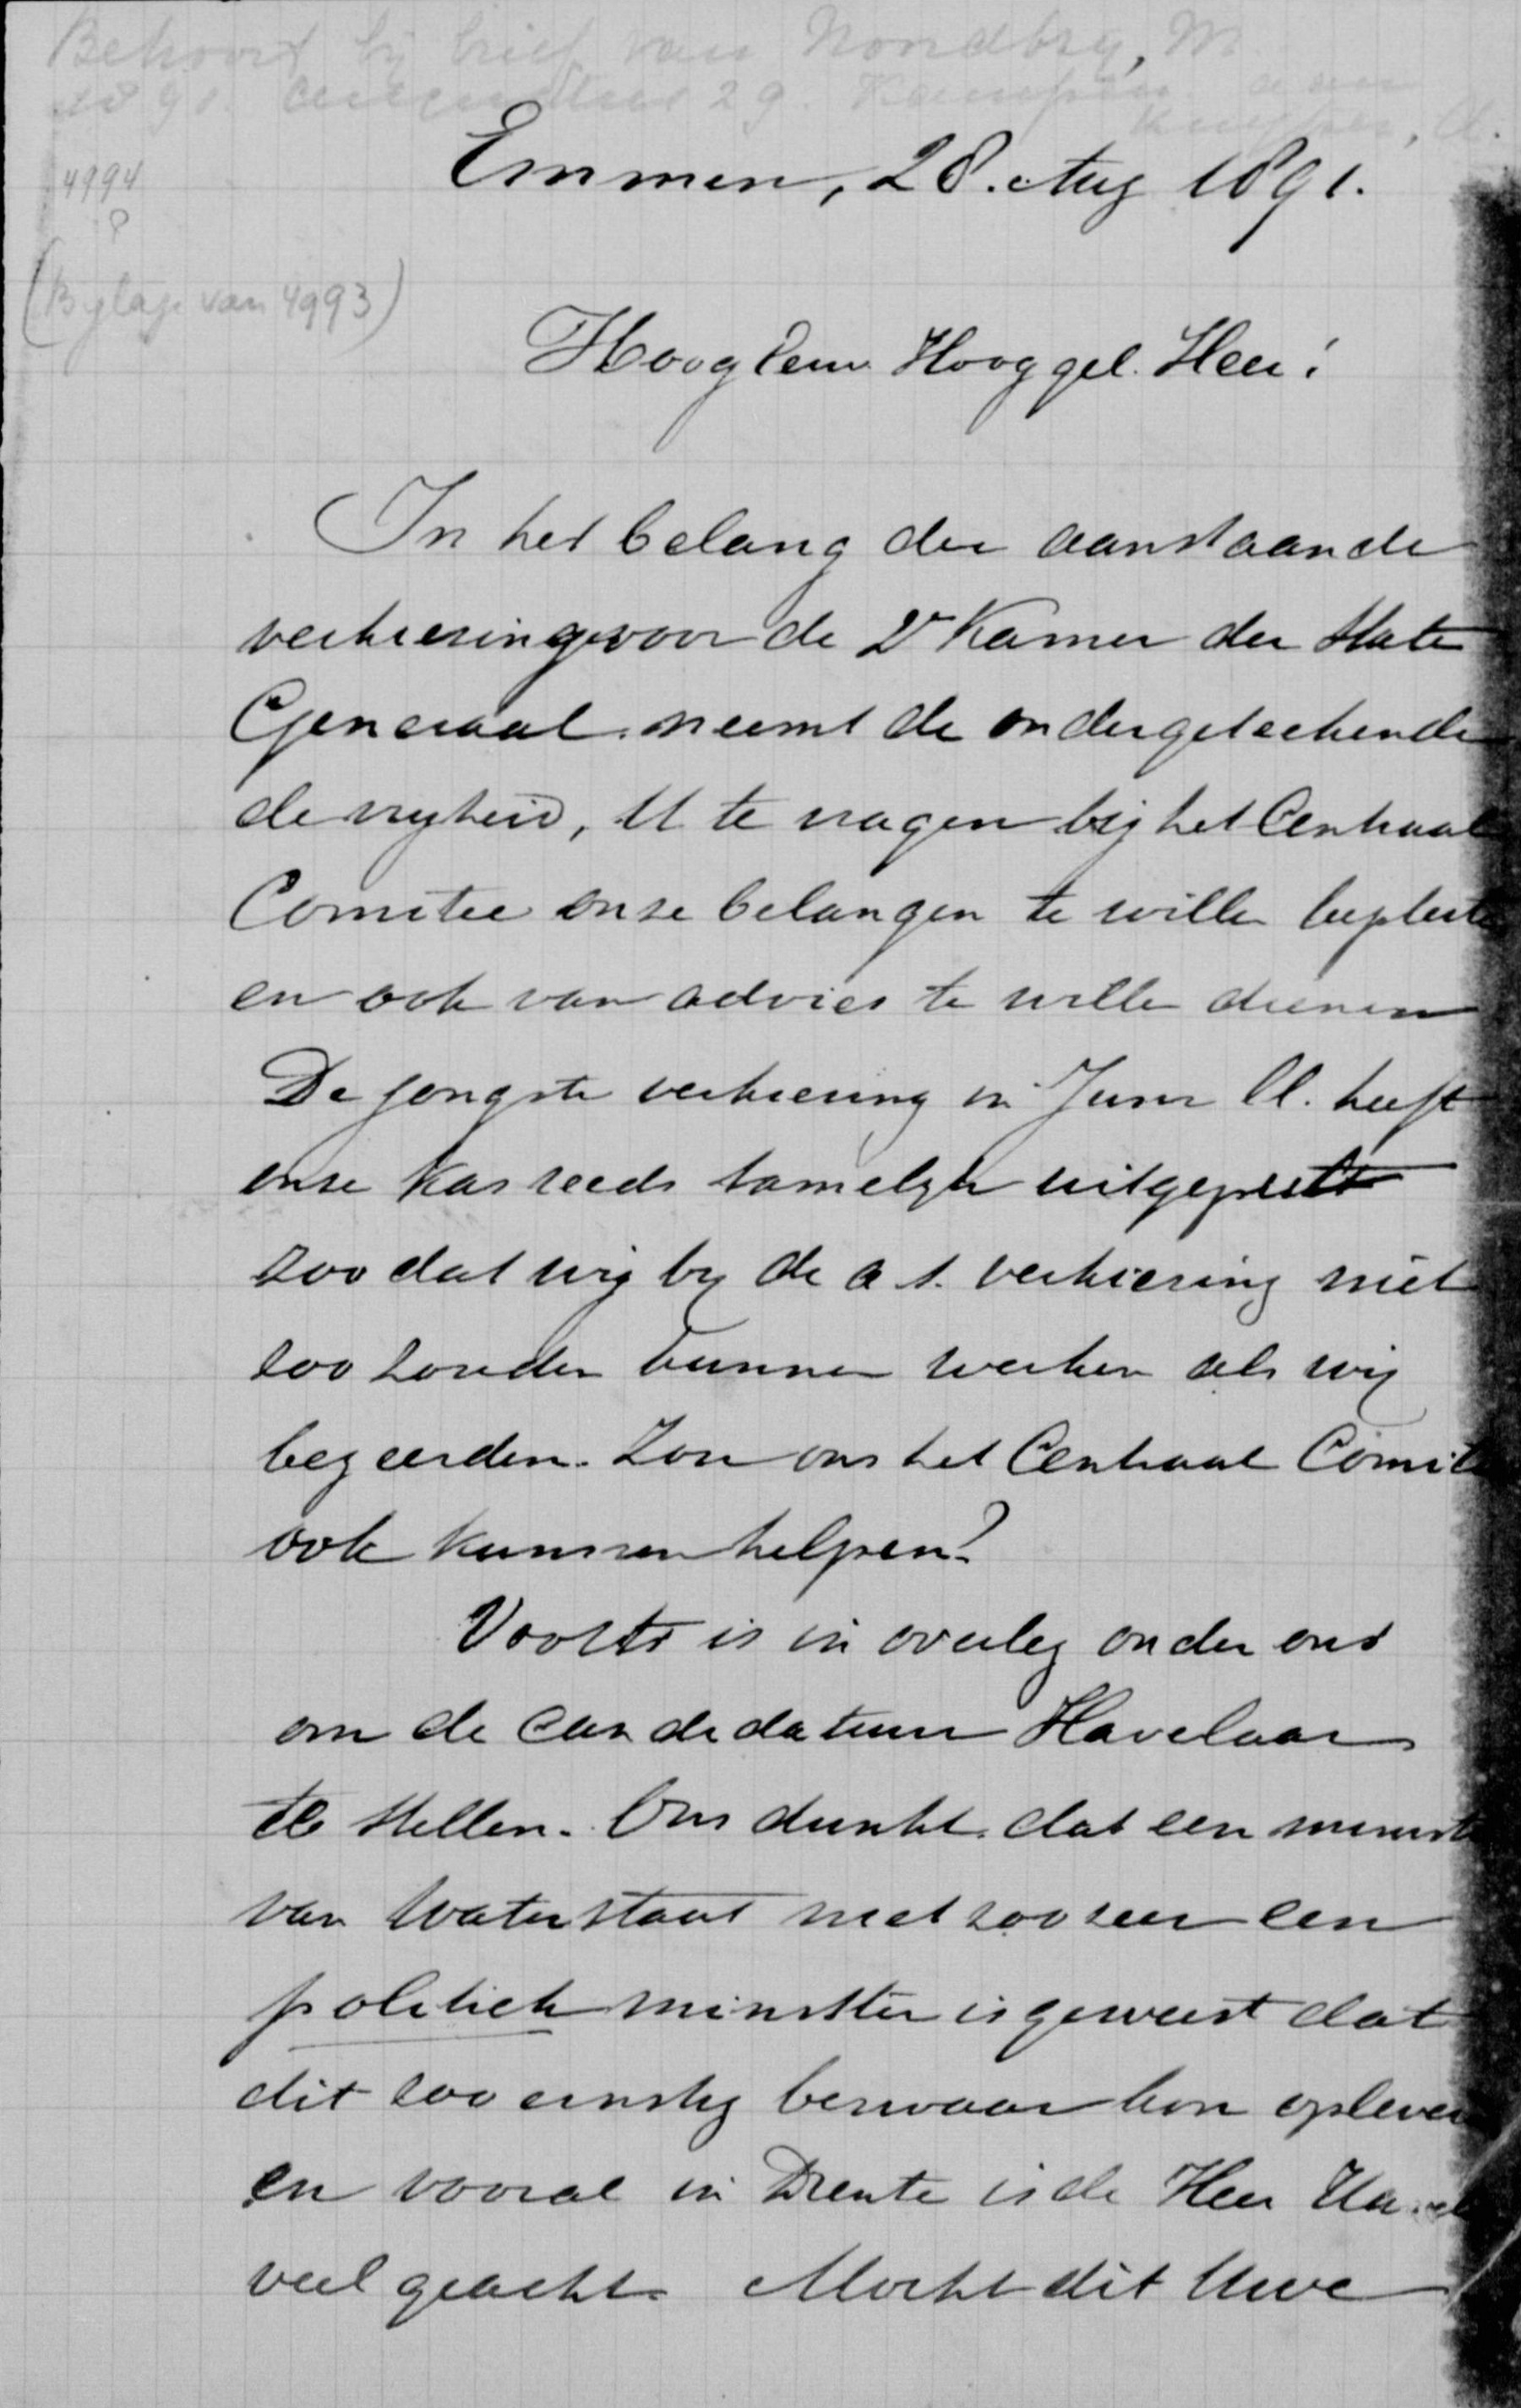 Behoort bij brief van Noordtzij, M.
1891 augustus 29 Kampen aan
Kuyper, A.
4994
P
(Bijlage van 4993)
Emmen, 28. Aug 1891.
Hoogleeraar Hooggel. Heer!
In het belang der aanstaande
verkiezing voor de 2e Kamer der State
Generaal neemt de ondergeteekende
de vrijheid, U te vragen bij het Centraal
Comitee onze belangen te wille bepleite
en ook van advies te wille dienen
De jongste verkiezing in Juni ll. heeft
onze kas reeds tamelijk uitgeput
zoodat wij bij de a.s. verkiezing niet
zoo zouden kunnen werken als wij
begeerden. Zou ons het Centraal Comite
ook kunnen helpen?
Voorts is in overleg onder ons
om de candidatuur Havelaar
te stellen. Ons dunkt dat een minist
van Waterstaat niet zoozeer een
politiek minister is geweest dat
dit zoo ernstig bezwaar kon oplever
en vooral in Drente is de Heer Havel
veel geacht. Mocht dit Uwe